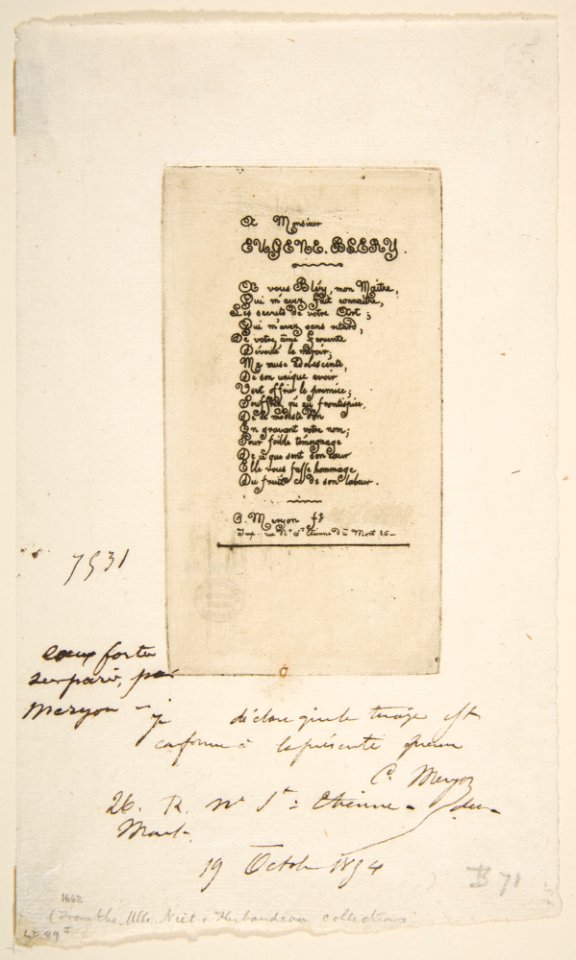 A Monsieur
EUGENE. BLERY
A vous Bléry, mon Maitre,
Qui m'avez fait connaitre,
Les secrets de votre Art;
Qui m'avez sans retard,
De votre âme fervente
Dévoilé le miroir;
Ma muse adolescente,
De son unique avoir
Vient offrir la prémice;
Souffrez qu'au frontispice,
De ce modeste don
En gravant votre nom;
Pour foible témoignage
De ce que sent son cœur
Elle vous fasse hommage
Du fruit de son labeur.
C. Meryon ft
Imp. rue Ne St Etienne du Mont 26
7531
eaux fortes
sur paris, par
meryon
je déclare que le tirage est
conforme à la présente épreuve
C. Meryon
26. R. Ne St Etienne du
Mont.
19 Octobre 1854
B 71
1662
(From the Niel & Thibaudeau collections
LD 89